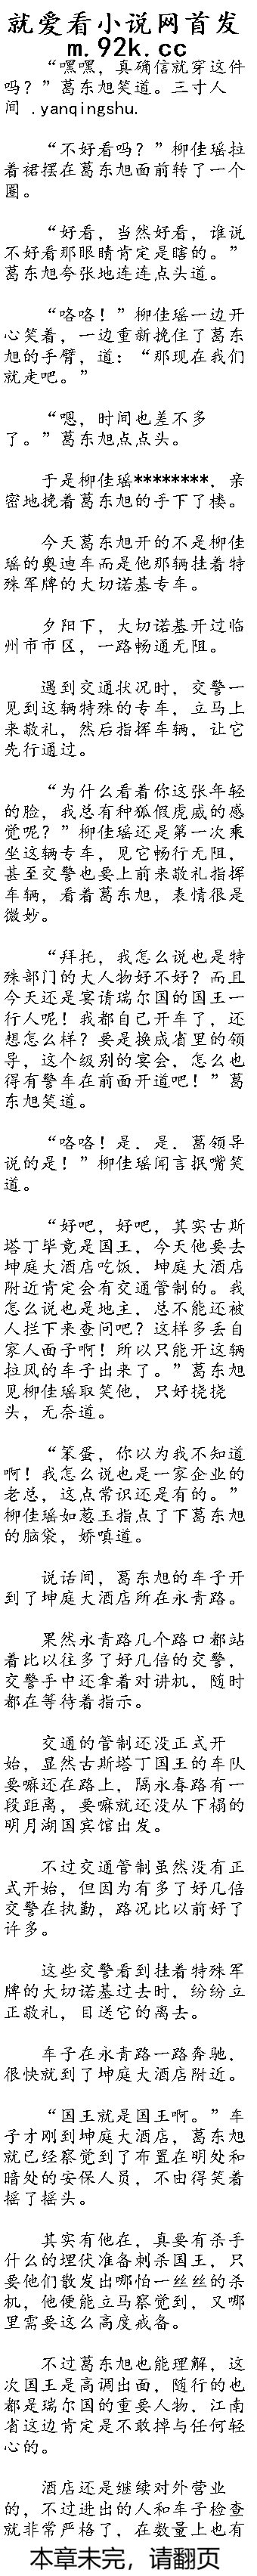 就爱看小说网首发
m.92k.cc
“嘿嘿，真确信就穿这件
吗？”葛东旭笑道。三寸人
间 .yanqingshu.
“不好看吗？”柳佳瑶拉
着裙摆在葛东旭面前转了一个
圈。
“好看，当然好看，谁说
不好看那眼睛肯定是瞎的。”
葛东旭夸张地连连点头道。
“咯咯！”柳佳瑶一边开
心笑着，一边重新挽住了葛东
旭的手臂，道：“那现在我们
就走吧。”
“嗯，时间也差不多
了。”葛东旭点点头。
于是柳佳瑶********，亲
密地挽着葛东旭的手下了楼。
今天葛东旭开的不是柳佳
瑶的奥迪车而是他那辆挂着特
殊军牌的大切诺基专车。
夕阳下，大切诺基开过临
州市市区，一路畅通无阻。
遇到交通状况时，交警一
见到这辆特殊的专车，立马上
来敬礼，然后指挥车辆，让它
先行通过。
“为什么看着你这张年轻
的脸，我总有种狐假虎威的感
觉呢？”柳佳瑶还是第一次乘
坐这辆专车，见它畅行无阻，
甚至交警也要上前来敬礼指挥
车辆，看着葛东旭，表情很是
微妙。
“拜托，我怎么说也是特
殊部门的大人物好不好？而且
今天还是宴请瑞尔国的国王一
行人呢！我都自己开车了，还
想怎么样？要是换成省里的领
导，这个级别的宴会，怎么也
得有警车在前面开道吧！”葛
东旭笑道。
“咯咯！是，是，葛领导
说的是！”柳佳瑶闻言抿嘴笑
道。
“好吧，好吧，其实古斯
塔丁毕竟是国王，今天他要去
坤庭大酒店吃饭，坤庭大酒店
附近肯定会有交通管制的。我
怎么说也是地主，总不能还被
人拦下来查问吧？这样多丢自
家人面子啊！所以只能开这辆
拉风的车子出来了。”葛东旭
见柳佳瑶取笑他，只好挠挠
头，无奈道。
“笨蛋，你以为我不知道
啊！我怎么说也是一家企业的
老总，这点常识还是有的。”
柳佳瑶如葱玉指点了下葛东旭
的脑袋，娇嗔道。
说话间，葛东旭的车子开
到了坤庭大酒店所在永青路。
果然永青路几个路口都站
着比以往多了好几倍的交警，
交警手中还拿着对讲机，随时
都在等待着指示。
交通的管制还没正式开
始，显然古斯塔丁国王的车队
要嘛还在路上，隔永春路有一
段距离，要嘛就还没从下榻的
明月湖国宾馆出发。
不过交通管制虽然没有正
式开始，但因为有多了好几倍
交警在执勤，路况比以前好了
许多。
这些交警看到挂着特殊军
牌的大切诺基过去时，纷纷立
正敬礼，目送它的离去。
车子在永青路一路奔驰，
很快就到了坤庭大酒店附近。
“国王就是国王啊。”车
子才刚到坤庭大酒店，葛东旭
就已经察觉到了布置在明处和
暗处的安保人员，不由得笑着
摇了摇头。
其实有他在，真要有杀手
什么的埋伏准备刺杀国王，只
要他们散发出哪怕一丝丝的杀
机，他便能立马察觉到，又哪
里需要这么高度戒备。
不过葛东旭也能理解，这
次国王是高调出面，随行的也
都是瑞尔国的重要人物，江南
省这边肯定是不敢掉与任何轻
心的。
酒店还是继续对外营业
的，不过进出的人和车子检查
就非常严格了，在数量上也有
本章未完，请翻页